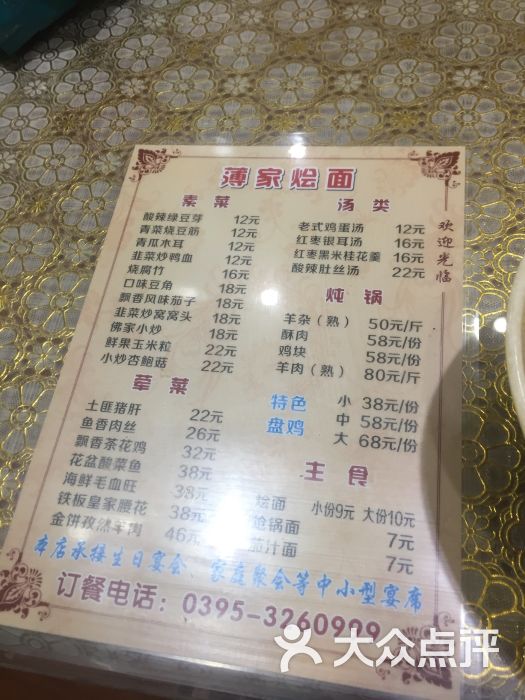 薄家烩面
素菜
酸辣绿豆芽 12元
青菜烧豆筋 12元
青瓜木耳 12元
韭菜炒鸭血 12元
烧腐竹 16元
口味豆角 18元
飘香风味茄子 18元
韭菜炒窝窝头 18元
佛家小炒 18元
鲜果玉米粒 22元
小炒杏鲍菇 22元
荤菜
土匪猪肝 22元
鱼香肉丝 26元
飘香茶花鸡 32元
花盆酸菜鱼 38元
海鲜毛血旺 38元
铁板皇家腰花 38元
金饼孜然羊肉 46元
汤类
老式鸡蛋汤 12元
红枣银耳汤 16元
红枣黑米桂花羹 16元
酸辣肚丝汤 22元
炖锅
羊杂（熟） 50元/斤
酥肉 58元/份
鸡块 58元/份
羊肉（熟） 80元/斤
特色盘鸡
小 38元/份
中 58元/份
大 68元/份
主食
烩面 小份9元 大份10元
炝锅面 7元
茄汁面 7元
欢迎光临
本店承接生日宴会、家庭聚会等中小型宴席
订餐电话：0395-3260929
大众点评